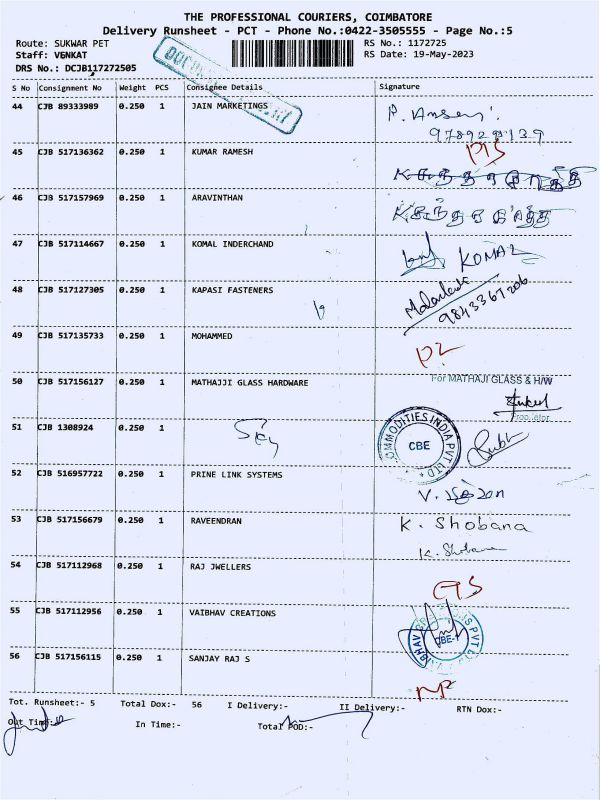 THE PROFESSIONAL COURIERS, COIMBATORE
Delivery Runsheet - PCT - Phone No.:0422-3505555 - Page No.:5
Route: SUKWAR PET
RS No.: 1172725
Staff: VENKAT
RS Date: 19-May-2023
DRS No.: DCJB117272505
S No Consignment No Weight PCS Consignee Details Signature
44 CJB 89333989 0.250 1 JAIN MARKETINGS
45 CJB 517136362 0.250 1 KUMAR RAMESH
46 CJB 517157969 0.250 1 ARAVINTHAN
47 CJB 517114667 0.250 1 KOMAL INDERCHAND KOMAL
48 CJB 517127305 0.250 1 KAPASI FASTENERS
9843367206
49 CJB 517135733 0.250 1 MOHAMMED
50 CJB 517156127 0.250 1 MATHAJJI GLASS HARDWARE For MATHAJI GLASS & H/W
51 CJB 1308924 0.250 1 COMMODITIES INDIA PVT LTD
CBE
52 CJB 516957722 0.250 1 PRINE LINK SYSTEMS
53 CJB 517156679 0.250 1 RAVEENDRAN K. Shobana
K. Shobana
54 CJB 517112968 0.250 1 RAJ JWELLERS
55 CJB 517112956 0.250 1 VAIBHAV CREATIONS
CBE
56 CJB 517156115 0.250 1 SANJAY RAJ S
Tot. Runsheet:- 5 Total Dox:- 56 I Delivery:- II Delivery:- RTN Dox:-
Out Time:- In Time:- Total POD:-